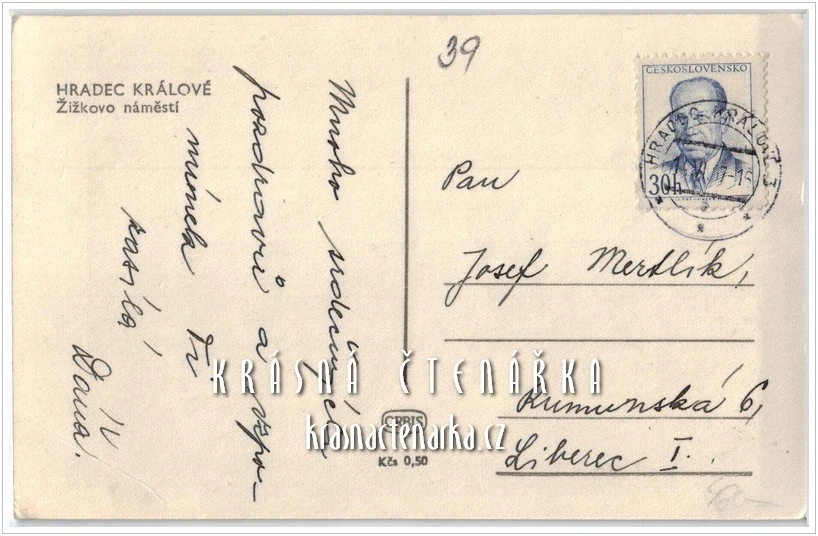 39
HRADEC KRÁLOVÉ
Žižkovo náměstí
Mnoho srdečných
pozdravů a vzpo-
mínek Ti
zasílá
Dana.
ČESKOSLOVENSKO
30h
HRADEC KRÁLOVÉ
Pan
Josef Mertlík,
Rumunská 6,
Liberec I.
KRÁSNÁ ČTENÁŘKA
krasnactenarka.cz
ORBIS
Kčs 0,50